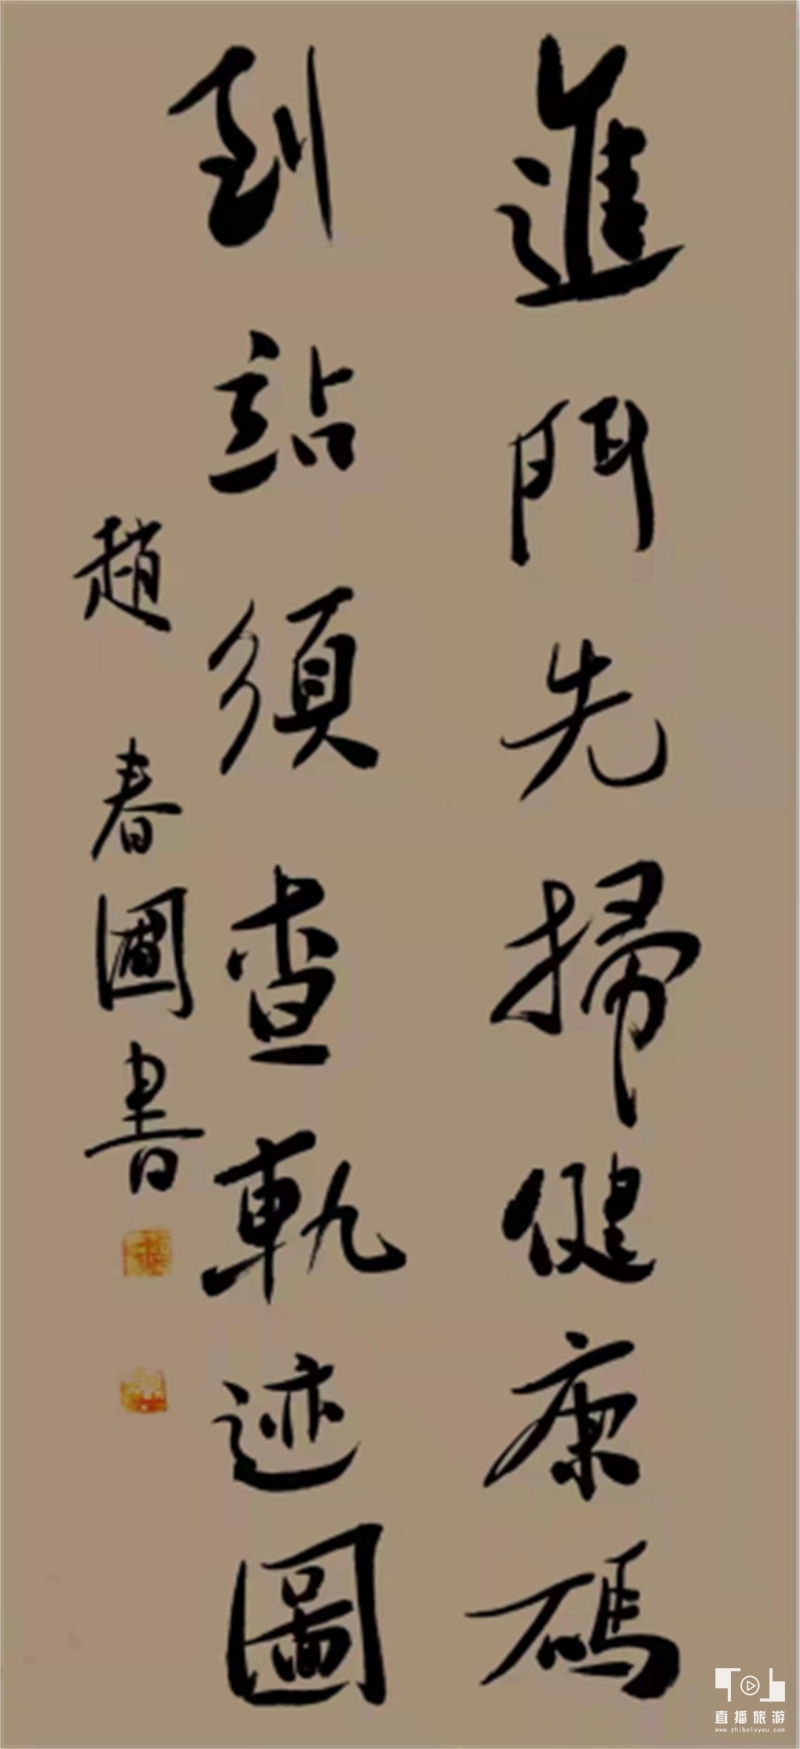 進門先掃健康碼
到站須查軌迹圖
趙春圃書
直播旅游
www.zhibolvyou.com